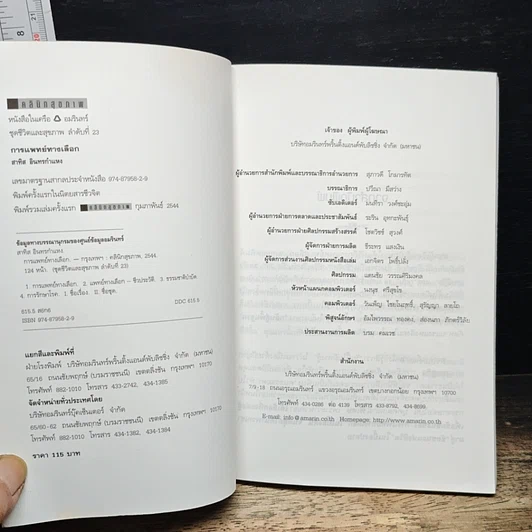 คลินิกสุขภาพ
หนังสือในเครือ อมรินทร์
ชุดชีวิตและสุขภาพ ลำดับที่ 23
การแพทย์ทางเลือก
สาทิส อินทรกำแหง
เลขมาตรฐานสากลประจำหนังสือ 974-87958-2-9
พิมพ์ครั้งแรกในนิตยสารชีวจิต
พิมพ์รวมเล่มครั้งแรก กุมภาพันธ์ 2544
ข้อมูลทางบรรณานุกรมของศูนย์ข้อมูลอมรินทร์
สาทิส อินทรกำแหง
การแพทย์ทางเลือก. -- กรุงเทพฯ : คลินิกสุขภาพ, 2544.
124 หน้า. (ชุดชีวิตและสุขภาพ ลำดับที่ 23)
1. การแพทย์ทางเลือก. 2. แพทย์ทางเลือก -- ชีวประวัติ 3. ธรรมชาติบำบัด.
4. การรักษาโรค. I. ชื่อเรื่อง. II. ชื่อชุด.
615.5
DDC 615.5
ISBN 974-87958-2-9
แยกสีและพิมพ์ที่
ฝ่ายโรงพิมพ์ บริษัทอมรินทร์พริ้นติ้งแอนด์พับลิชชิ่ง จำกัด (มหาชน)
65/16 ถนนชัยพฤกษ์ (บรมราชชนนี) เขตตลิ่งชัน กรุงเทพฯ 10170
โทรศัพท์ 882-1010 โทรสาร 433-2742, 434-1385
จัดจำหน่ายทั่วประเทศโดย
บริษัทอมรินทร์บุ๊คเซ็นเตอร์ จำกัด
65/60-62 ถนนชัยพฤกษ์ (บรมราชชนนี) เขตตลิ่งชัน กรุงเทพฯ 10170
โทรศัพท์ 882-1010 โทรสาร 434-1382, 434-1384
ราคา 115 บาท
เจ้าของ ผู้พิมพ์ผู้โฆษณา
บริษัทอมรินทร์พริ้นติ้งแอนด์พับลิชชิ่ง จำกัด (มหาชน)
ผู้อำนวยการสำนักพิมพ์และบรรณาธิการอำนวยการ สุภาวดี โกมารทัต
บรรณาธิการ ปรีณา มีสว่าง
ซับเอดิเตอร์ มนทิรา วงศ์ชะอุ่ม
ผู้อำนวยการฝ่ายการตลาดและประชาสัมพันธ์ ระริน อุทกะพันธุ์
ผู้อำนวยการฝ่ายศิลปกรรมสร้างสรรค์ โชควิชช์ สุวงศ์
ผู้จัดการฝ่ายการผลิต ธีระพร แสงเงิน
ผู้จัดการส่วนงานศิลปกรรมหนังสือเล่ม เอกจิตร โพธิ์ปลั่ง
ศิลปกรรม แดนชัย วรรณศิริมงคล
หัวหน้าแผนกคอมพิวเตอร์ นคนุช ศรีสุขโข
คอมพิวเตอร์ วันเพ็ญ ไชยในฤทธิ์, สุรัญญา ดายโอ
พิสูจน์อักษร ทองคง,
ประสานงานการผลิต บรม คมเวช
สำนักงาน
บริษัทอมรินทร์พริ้นติ้งแอนด์พับลิชชิ่ง จำกัด (มหาชน)
7/9-18 ถนนอรุณอมรินทร์ แขวงอรุณอมรินทร์ เขตบางกอกน้อย กรุงเทพฯ 10700
โทรศัพท์ 434-0286 ต่อ 4139 โทรสาร 433-8792, 434-8699.
E-mail: info@amarin.co.th Homepage: http://www.amarin.co.th